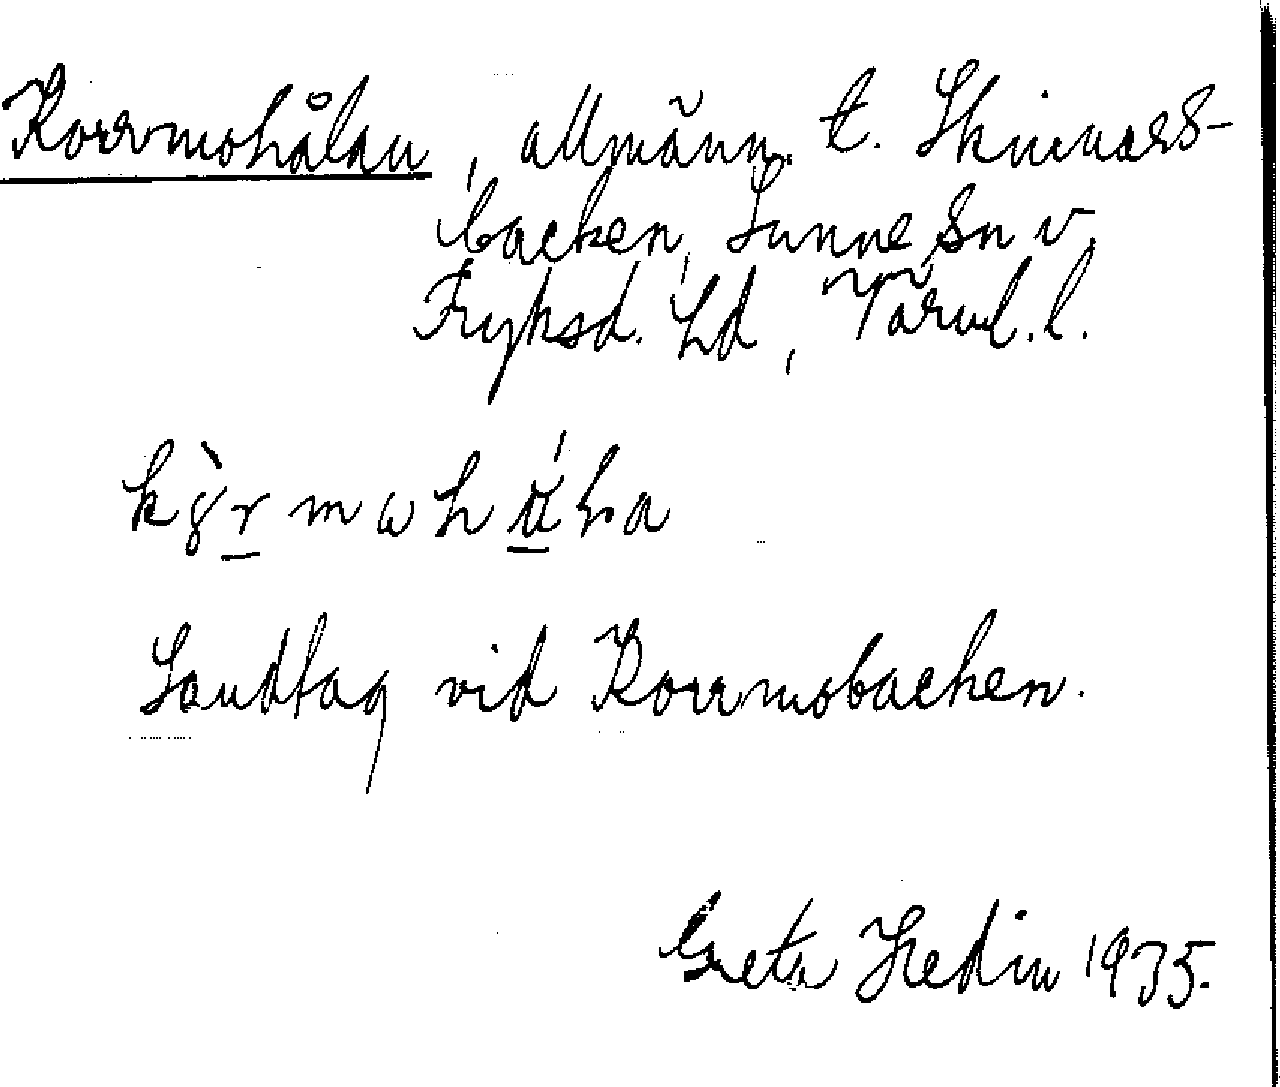 Korrmohålan, allmänn. t. Skinnars-
backen, Sunne sn v
Fryksd. hd, Värml. l.
Sandtag vid Korrmobacken.
Greta Hedin 1935.